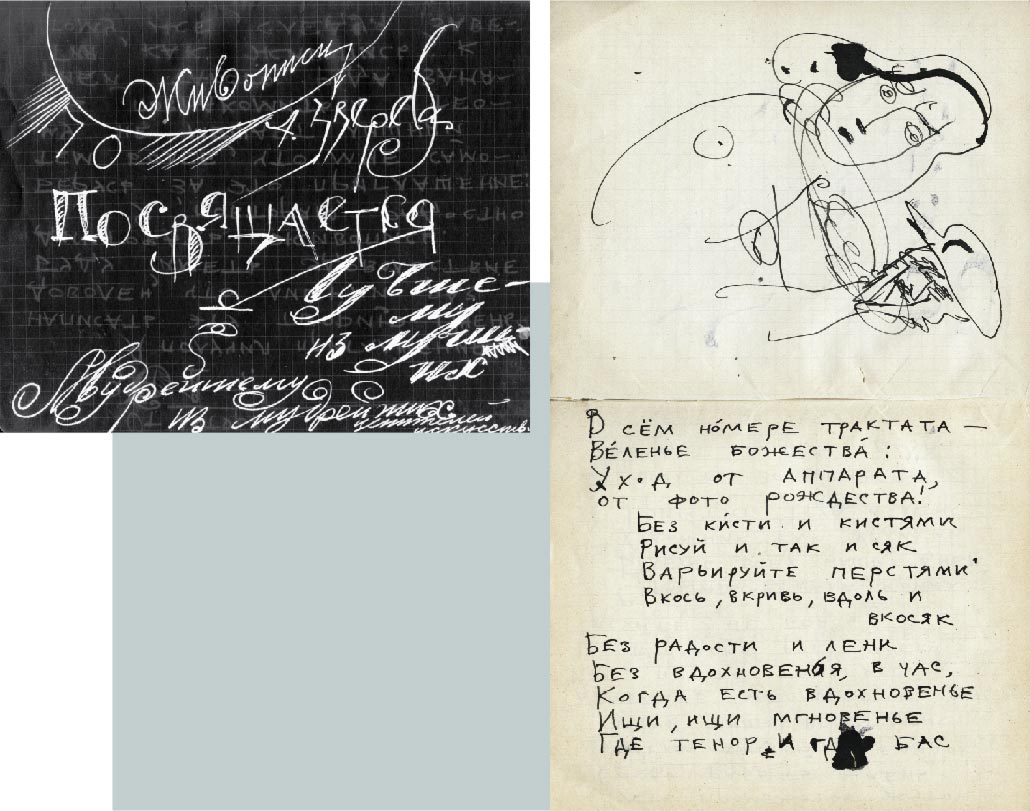 Живописи
А. Зверева
Посвящается
му
из
Мудрейшему
из мудрейших
ценителей
искусств.
В сём но́мере трактата —
Ве́ленье божества́:
Уход от аппарата,
от фото рождества!
Без ки́сти и кистями
Рисуй и так и сяк
Варьируйте перстями
Вкось, вкривь, вдоль и
вкосяк
Без радости и лени
Без вдохновенья, в час,
Когда есть вдохновенье
Ищи, ищи мгновенье
Где тенор и где бас